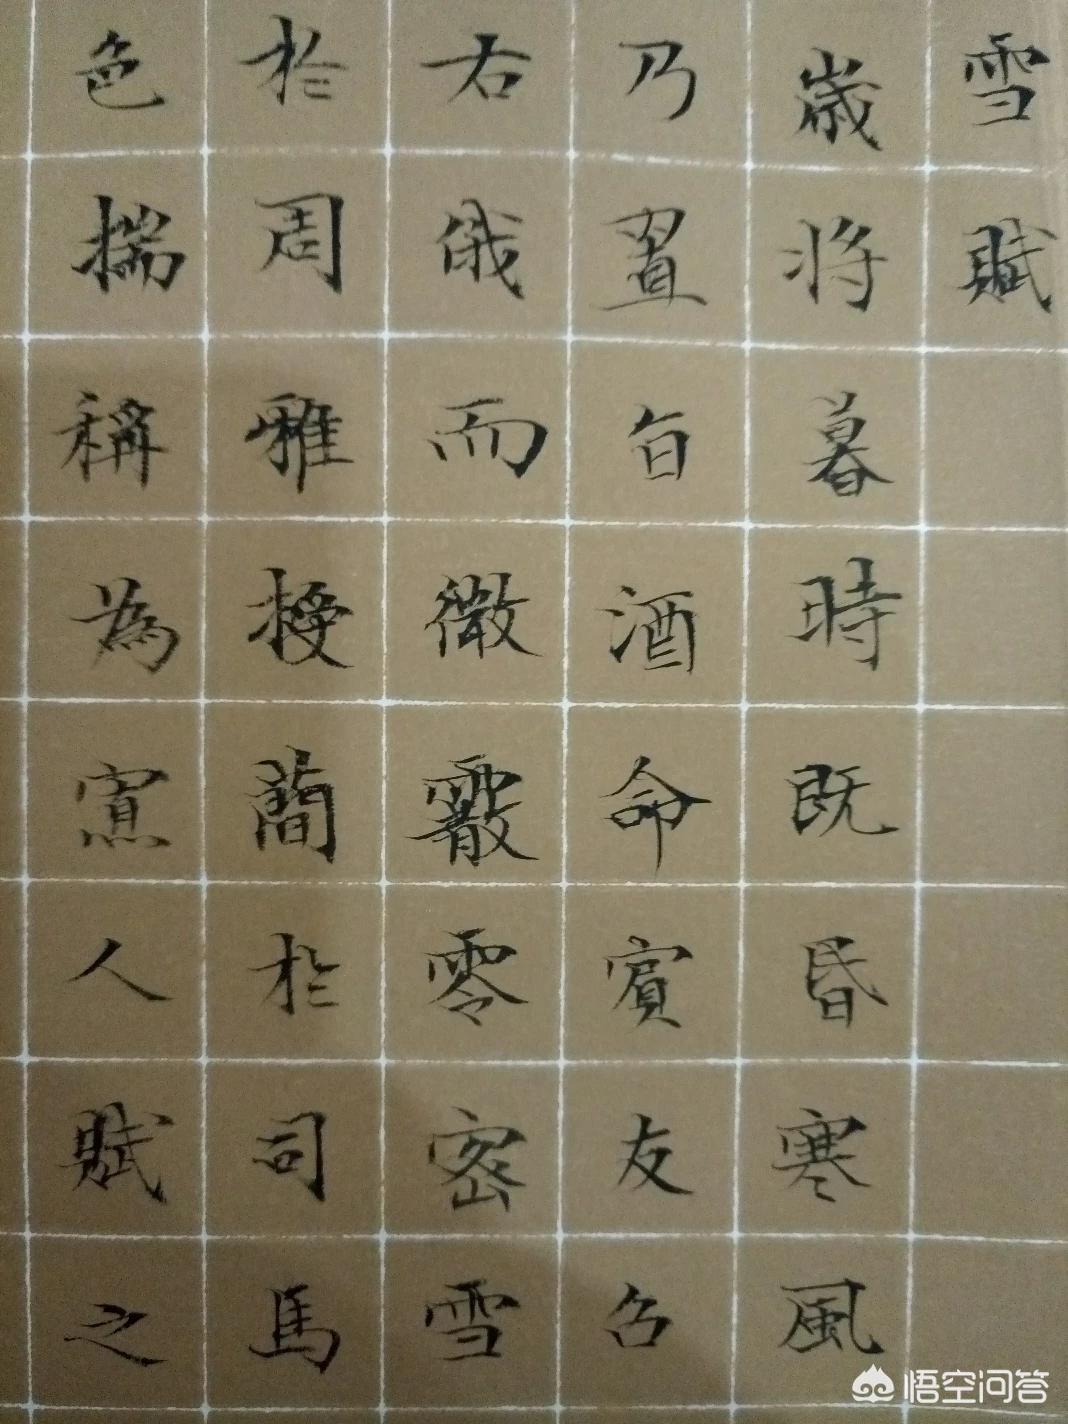 雪賦
歲將暮時既昏寒風
乃置旨酒命賓友召
右俄而微霰零密雪
於周雅授簡於司馬
色揣稱為寡人賦之
悟空问答